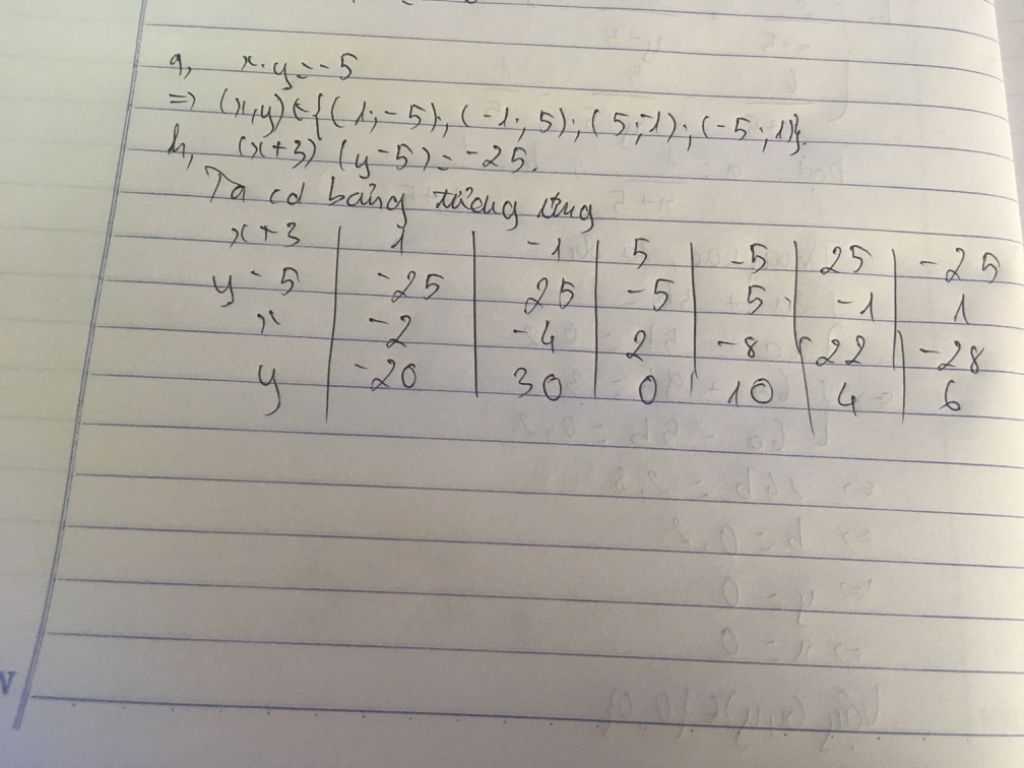 a, x.y = -5
=> (x,y) ∈ {(1;-5); (-1; 5); (5;-1); (-5; 1)}.
h, (x+3) (y-5) = -25.
Ta có bảng tương ứng
x+3 | 1 | -1 | 5 | -5 | 25 | -25
y - 5 | -25 | 25 | -5 | 5 | -1 | 1
x | -2 | -4 | 2 | -8 | 22 | -28
y | -20 | 30 | 0 | 10 | 4 | 6